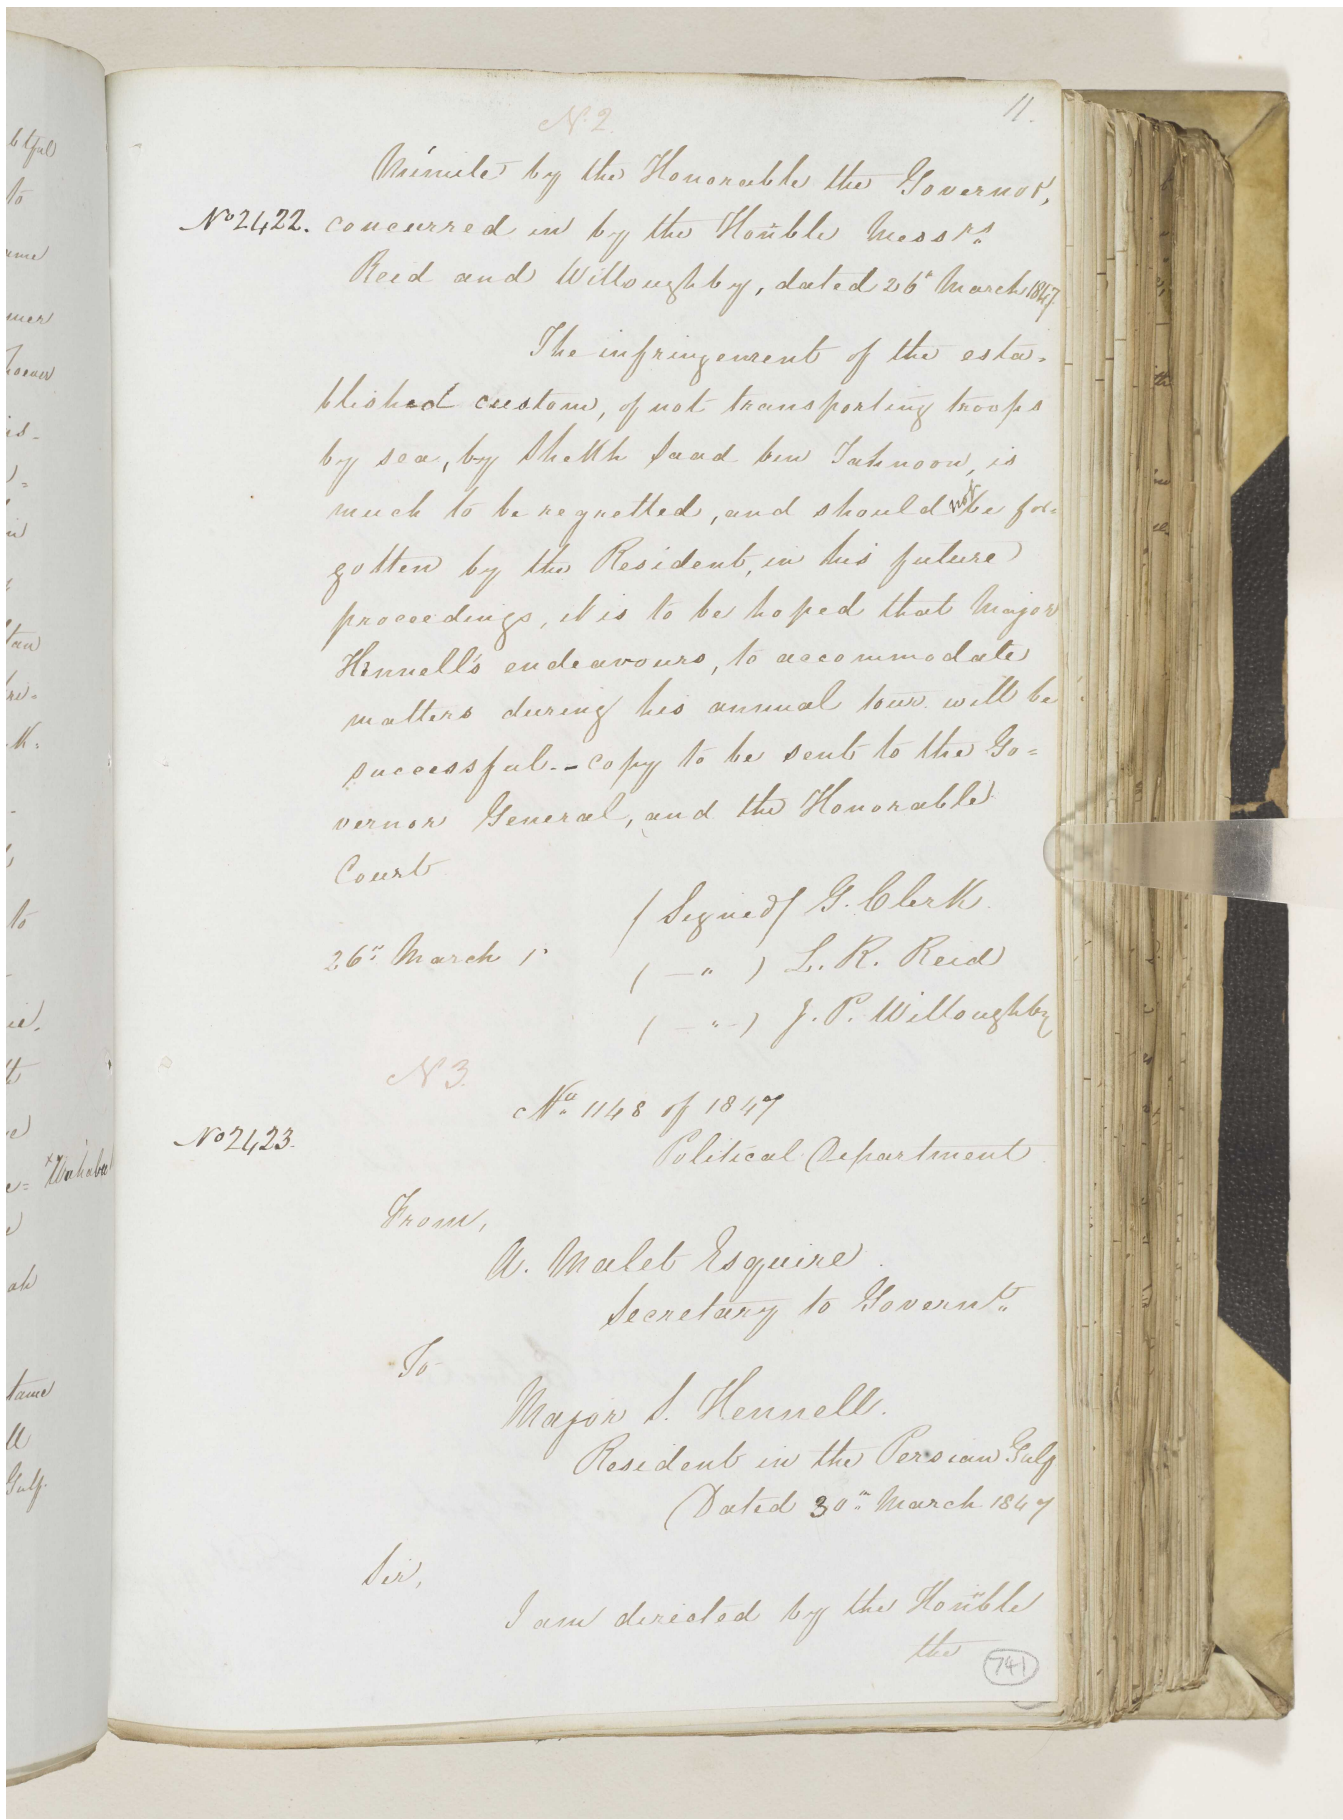 11.
N. 2.
Minute by the Honorable the Governor,
No 2422. concurred in by the Hon'ble Messrs
Reid and Willoughby, dated 26th March 1847.
The infringement of the esta=
blished custom, of not transporting troops
by sea, by Sheikh Saad bin Tahnoon, is
much to be regretted, and should not be for=
gotten by the Resident, in his future
proceedings, it is to be hoped that Major
Hennell's endeavours, to accommodate
matters during his annual tour will be
successful. - copy to be sent to the Go=
vernor General, and the Honorable
Court
(Signed) G. Clerk.
26th March
( - " ) L. R. Reid
( - " - ) J. P. Willoughby
N 3.
No. 1148 of 1847
No 2423.
Political Department
From,
A. Malet Esquire.
Secretary to Governt.
To
Major S. Hennell.
Resident in the Persian Gulf
Dated 30th March 1847
Sir,
I am directed by the Hon'ble
the
741